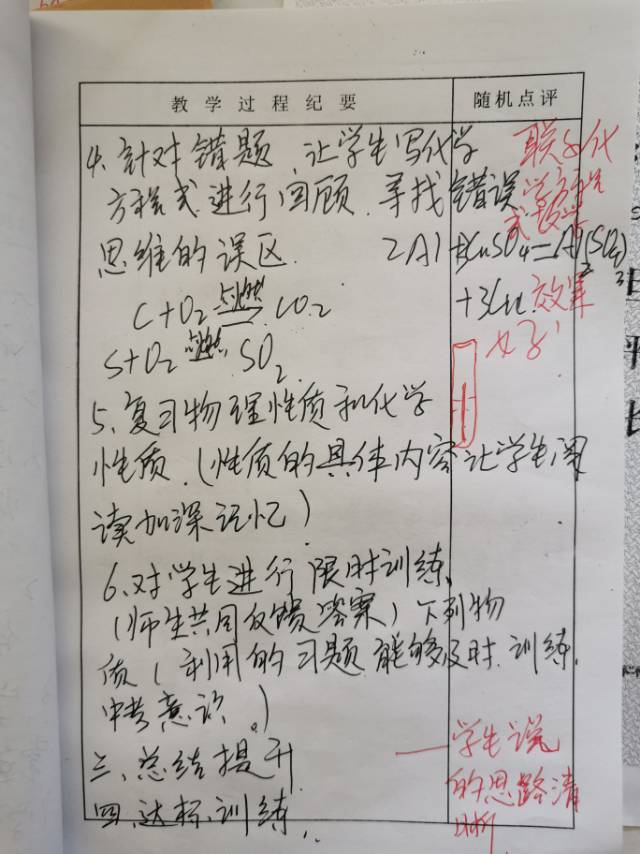 教学过程纪要
随机点评
4. 针对错题，让学生写化学
方程式进行回顾，寻找错误
思维的误区.
2Al+3CuSO4=Al2(SO4)3
+3Cu.
C+O2 点燃 CO2
S+O2 点燃 SO2
5、复习物理性质和化学
性质.（性质的具体内容让学生阅
读加深记忆）
6、对学生进行限时训练、
（师生共同反馈答案）下列物
质（利用的习题能够及时训练
中考意识。）
三、总结提升
四、达标训练.
效果
学生说
的思路清
晰